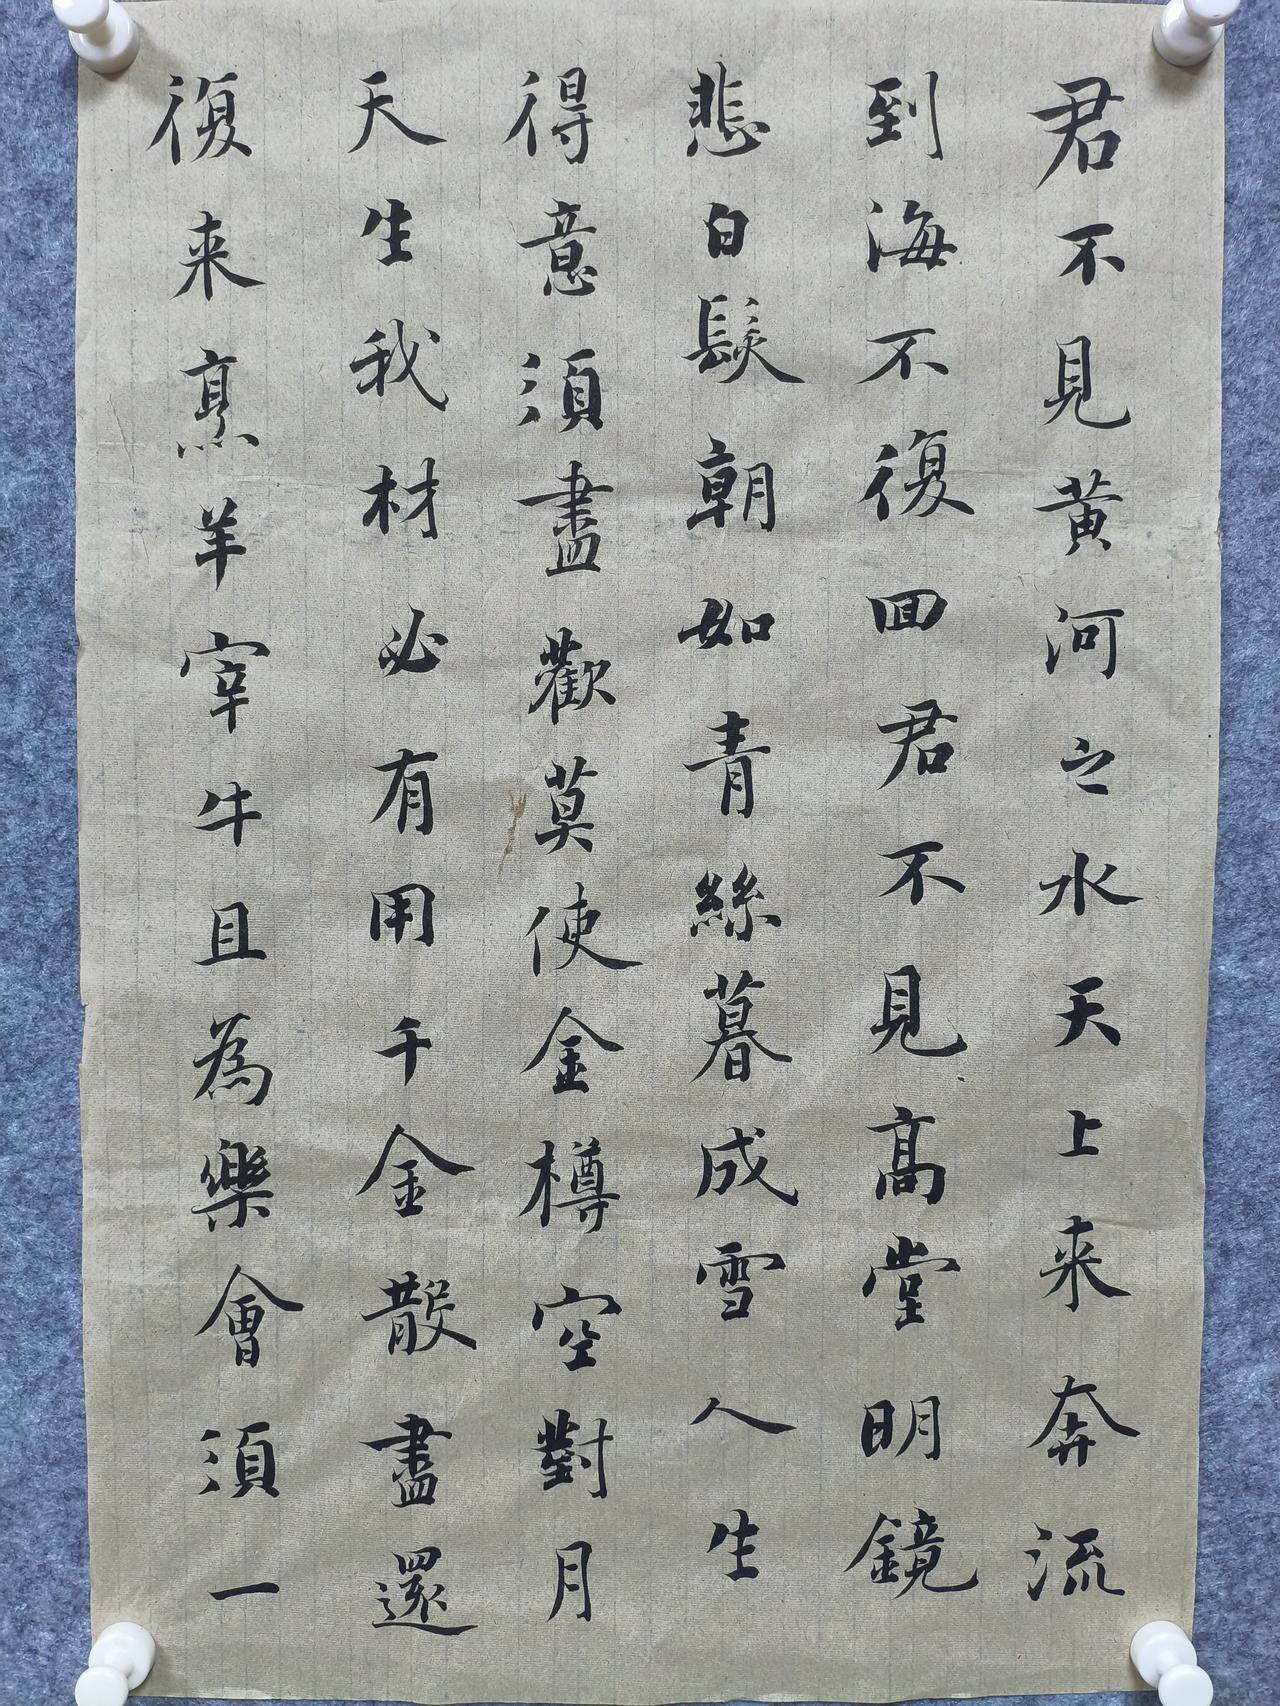 君不見黄河之水天上来奔流
到海不復回君不見高堂明鏡
悲白髮朝如青絲暮成雪人生
得意須盡歡莫使金樽空對月
天生我材必有用千金散盡還
復来烹羊宰牛且為樂會須一